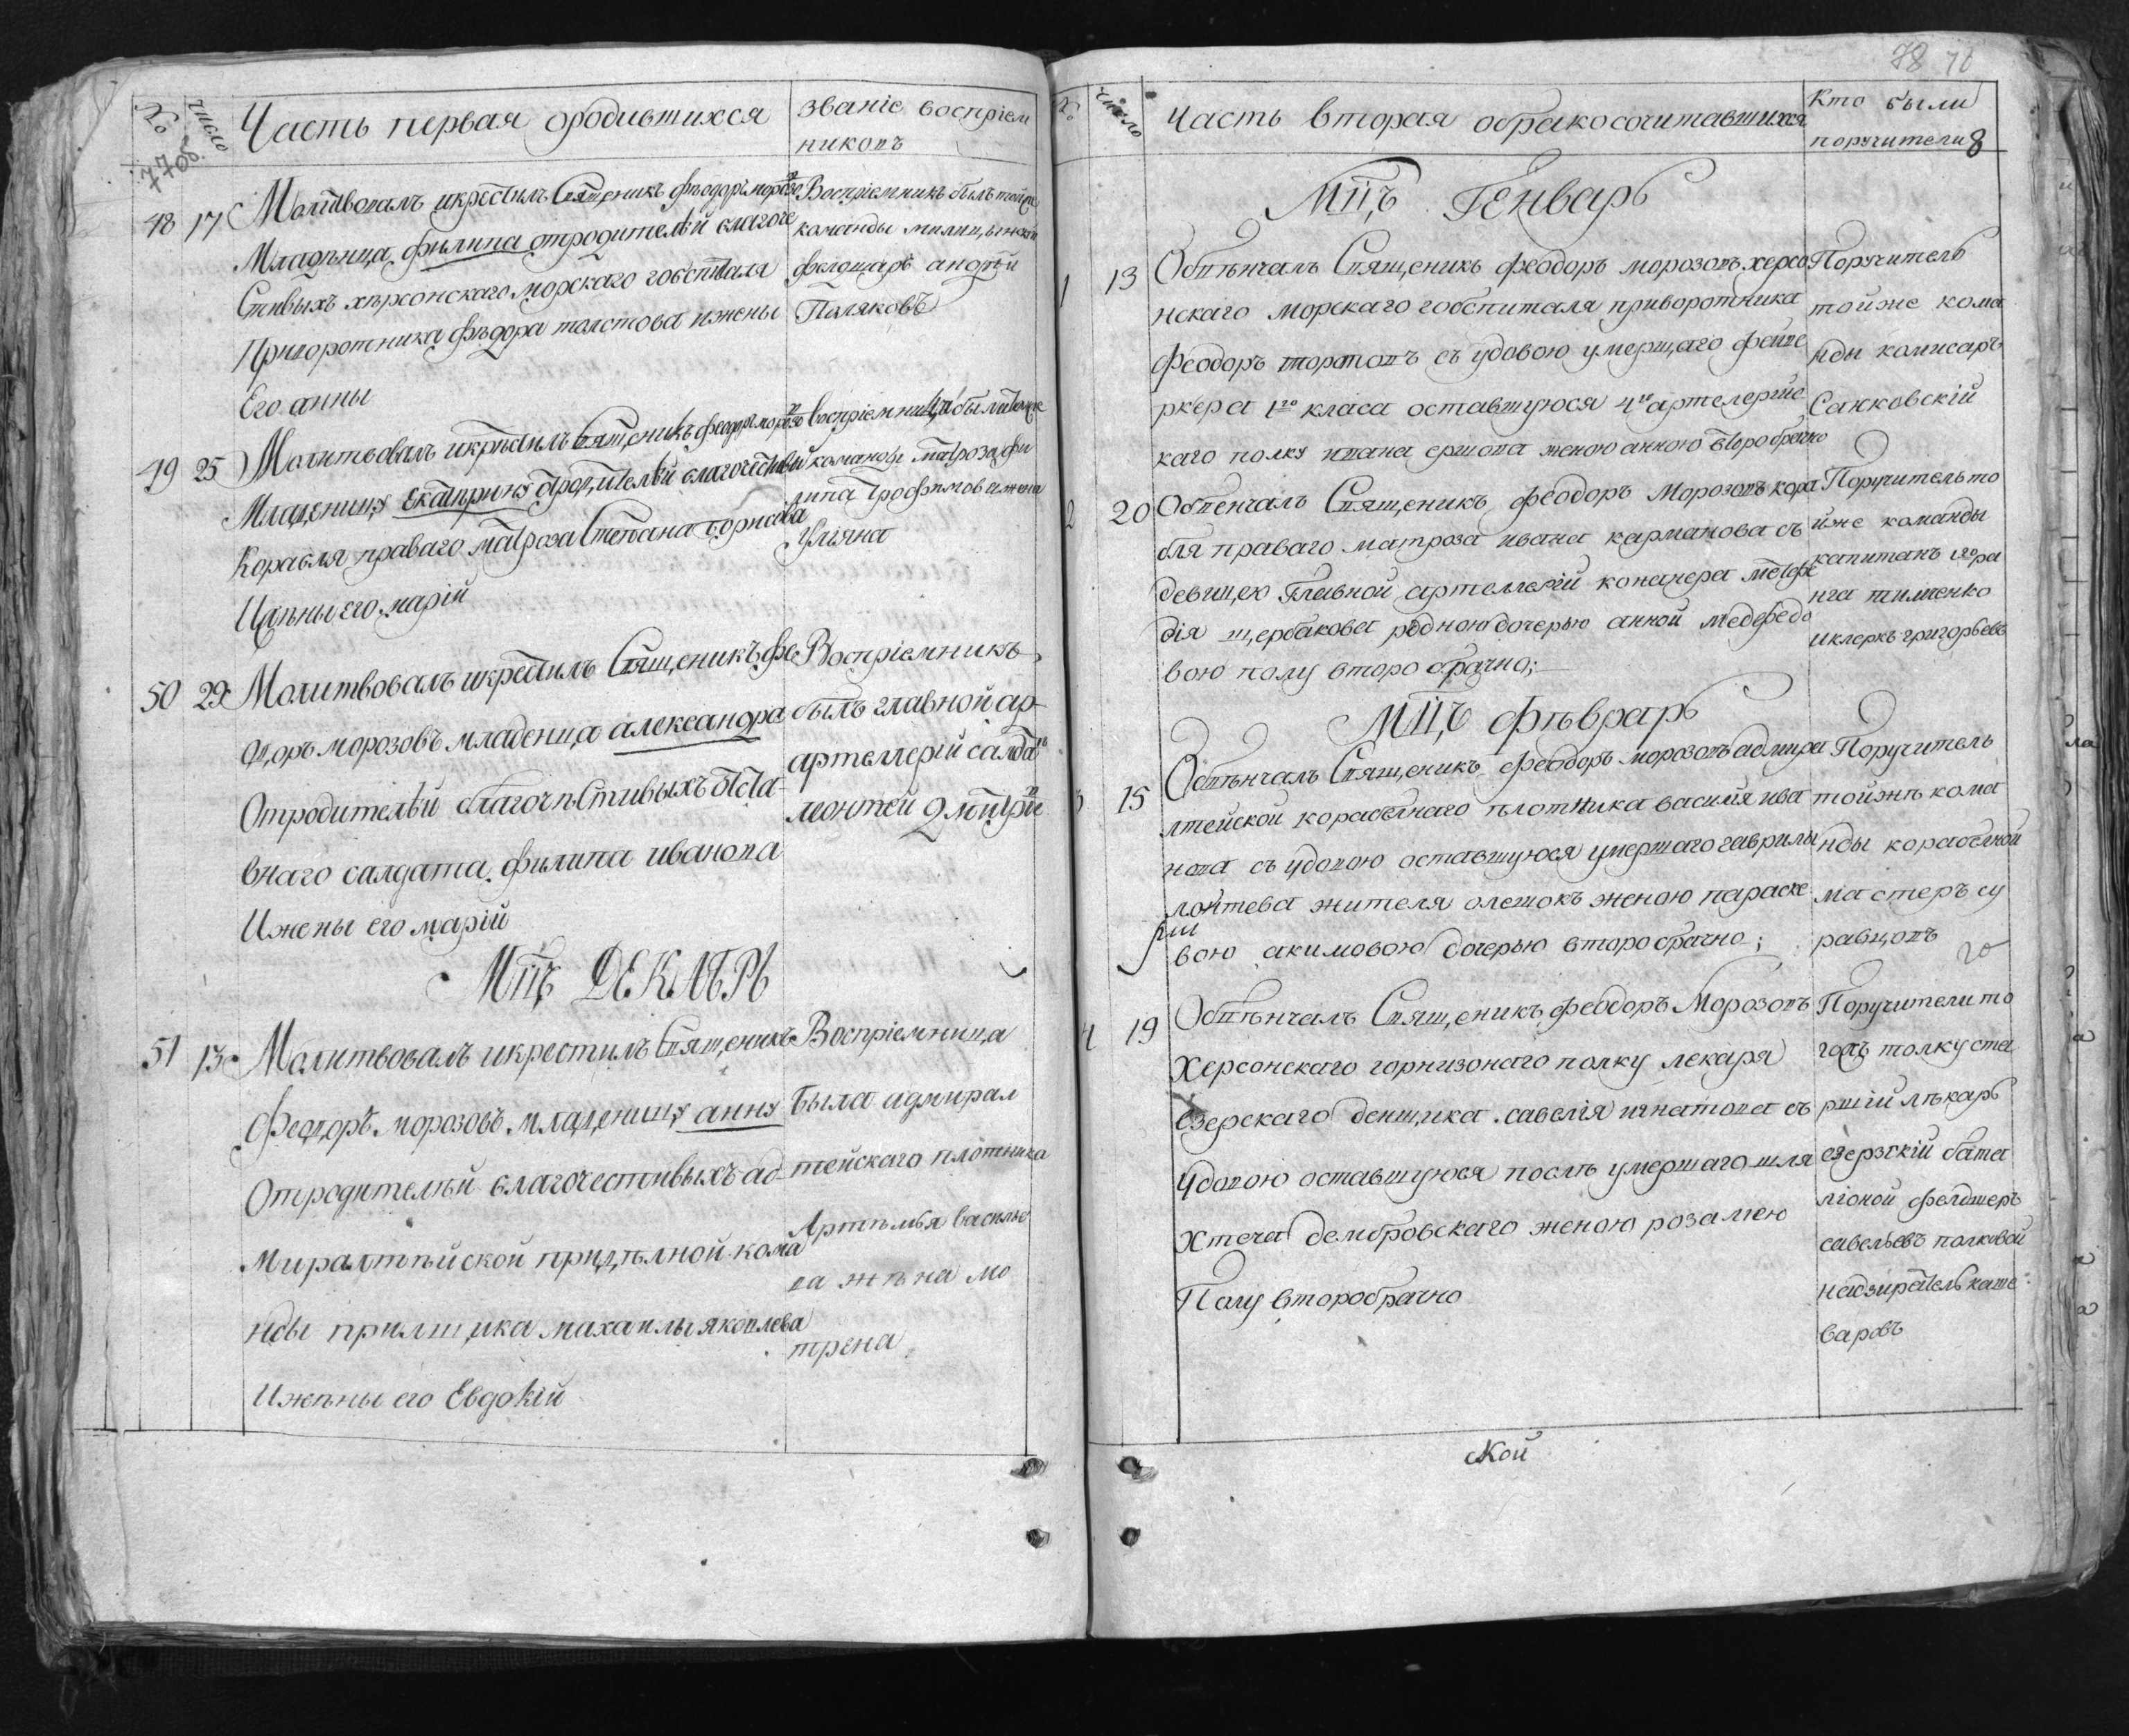 №
число
Часть первая ородившихся
званіе воспріем
никовъ
77 об.
48
17
Молитвовалъ икрестилъ Священикъ феодоръ морозо
Младѣнца филипа отродителѣй благоче
Стивыхъ хѣрсонскаго морскаго гобспиталя
Приворотника фѣдора толстова ижены
Его анны
Воспріемникъ былъ тойже
команды
фелдшаръ андрѣй
Поляковъ
49
25
Молитвовалъ икрѣстилъ Священикъ феодоръ морозо
Младеницу Екатирину отродителѣй благочестивый
Корабля праваго матроза Степана борисова
Ижѣны его марій
воспріемница были тойже
команды матроза фи
липа трофимов ижена
Ульяна
50
29
Молитвовалъ икрестилъ Священикъ фе
одоръ морозовъ младенца александра
Отродителѣй благочѣстивыхъ отста
внаго салдата филипа иванова
Ижены его марій
Воспріемникъ
былъ главной ар
артеллерій салдатъ
леонтей дмитріе
Мцъ ДЕКАБРЬ
51
13
Молитвовалъ икрестилъ Священикъ
Феодоръ морозовъ младеницу анну
Отродителѣй благочестивыхъ ад
миралтѣйской придѣлной кома
нды прилщика михаилы яковлева
Ижены его Евдокій
Воспріемница
была адмирал
тейскаго плотника
Артѣмья василье
ва жѣна мо
трена
78
№
число
Часть вторая обракосочитавшихся
Кто были
поручители
8
Мцъ Генварь
1
13
Обвѣнчалъ Священикъ феодоръ морозовъ херсо
нскаго морскаго гобспиталя приворотника
Феодоръ торотовъ съ удовою умершаго фейве
ркера 1го класа оставшуюся 4го артелерійс
каго полку ивана ершова женою анною второбрачно
Поручитель
тойже кома
нды комисаръ
Санковскій
2
20
Обвенчалъ Священикъ феодоръ Морозовъ кора
бля праваго матроза ивана карманова съ
девицею Главной артеллерій конанера мефо
дія щербакова родною дочерью анной медфедо
вою полу второ брачно;
Поручитель то
йже команды
капитанъ
тименко
иклеркъ григорьевъ
Мцъ фѣврарь
3
15
Обвѣнчалъ Священикъ феодоръ морозовъ адмира
лтейской корабелнаго плотника василія ива
нова съ удовою оставшуюся умершаго гаврилы
лоптева жителя олешокъ женою параске
вою акимовою дочерью второ брачно;
Поручитель
тойжѣ кома
нды корабелной
мастеръ су
равцовъ
4
19
Обвѣнчалъ Священикъ феодоръ Морозовъ
Херсонскаго горнизонаго полку лекаря
езерскаго денщика савелія игнатова съ
Удовою оставшуюся послѣ умершаго шля
хтеча дембровскаго женою розалею
Полу второбрачно
Поручители то
гожъ полку ста
ршій лѣкарь
езерзкій бата
ліоной фелдшеръ
савельевъ полковой
надзиратель кате
варовъ
ской